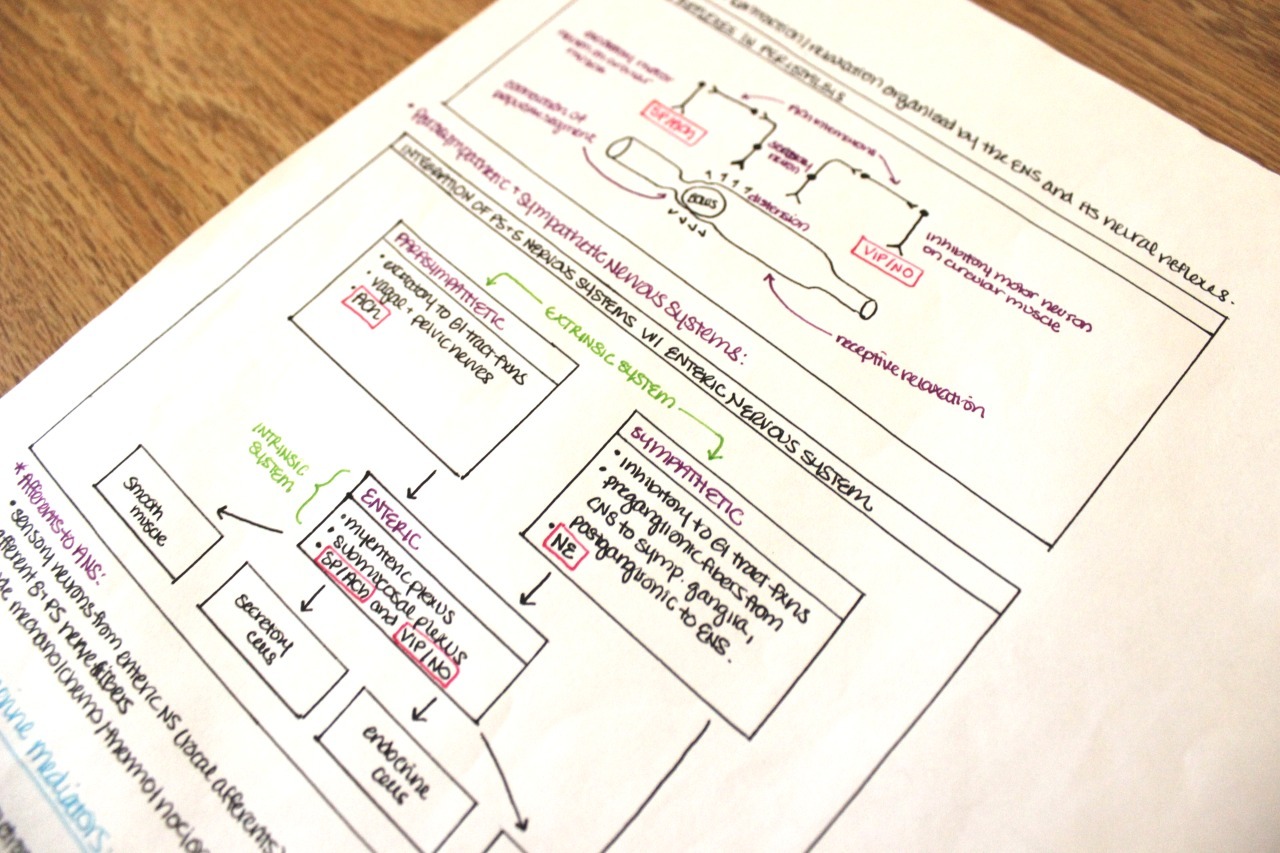 contraction/relaxation organised by the ENS and its neural reflexes.
REFLEXES IN PERISTALSIS
excitatory motor
neuron on circular
muscle
SP/ACh
ACh interneurons
sensory
neuron
contraction of
propulsive segment
BOLUS
distension
VIP/NO
inhibitory motor neuron
on circular muscle
receptive relaxation
• Parasympathetic + Sympathetic Nervous Systems:
INTEGRATION OF PS+S NERVOUS SYSTEMS W/ ENTERIC NERVOUS SYSTEM
PARASYMPATHETIC
• excitatory to GI tract fxns
• vagal + pelvic nerves
• ACh
EXTRINSIC SYSTEM
SYMPATHETIC
• inhibitory to GI tract fxns
• preganglionic fibers from
CNS to symp. ganglia,
postganglionic to ENS.
• NE
INTRINSIC
SYSTEM
ENTERIC
• myenteric plexus
• submucosal plexus
• SP/ACh and VIP/NO
smooth
muscle
secretory
cells
endocrine
cells
* Afferents to ANS:
• sensory neurons from enteric NS (local afferents)
PS nerve fibers
mechano/chemo/thermo/nocice
mediators